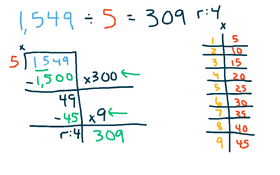 1,549 ÷ 5 = 309 r:4
x
5 1549
-1,500 x300 ←
49
-45 x9 ←
r:4 309
x
1 5
2 10
3 15
4 20
5 25
6 30
7 35
8 40
9 45